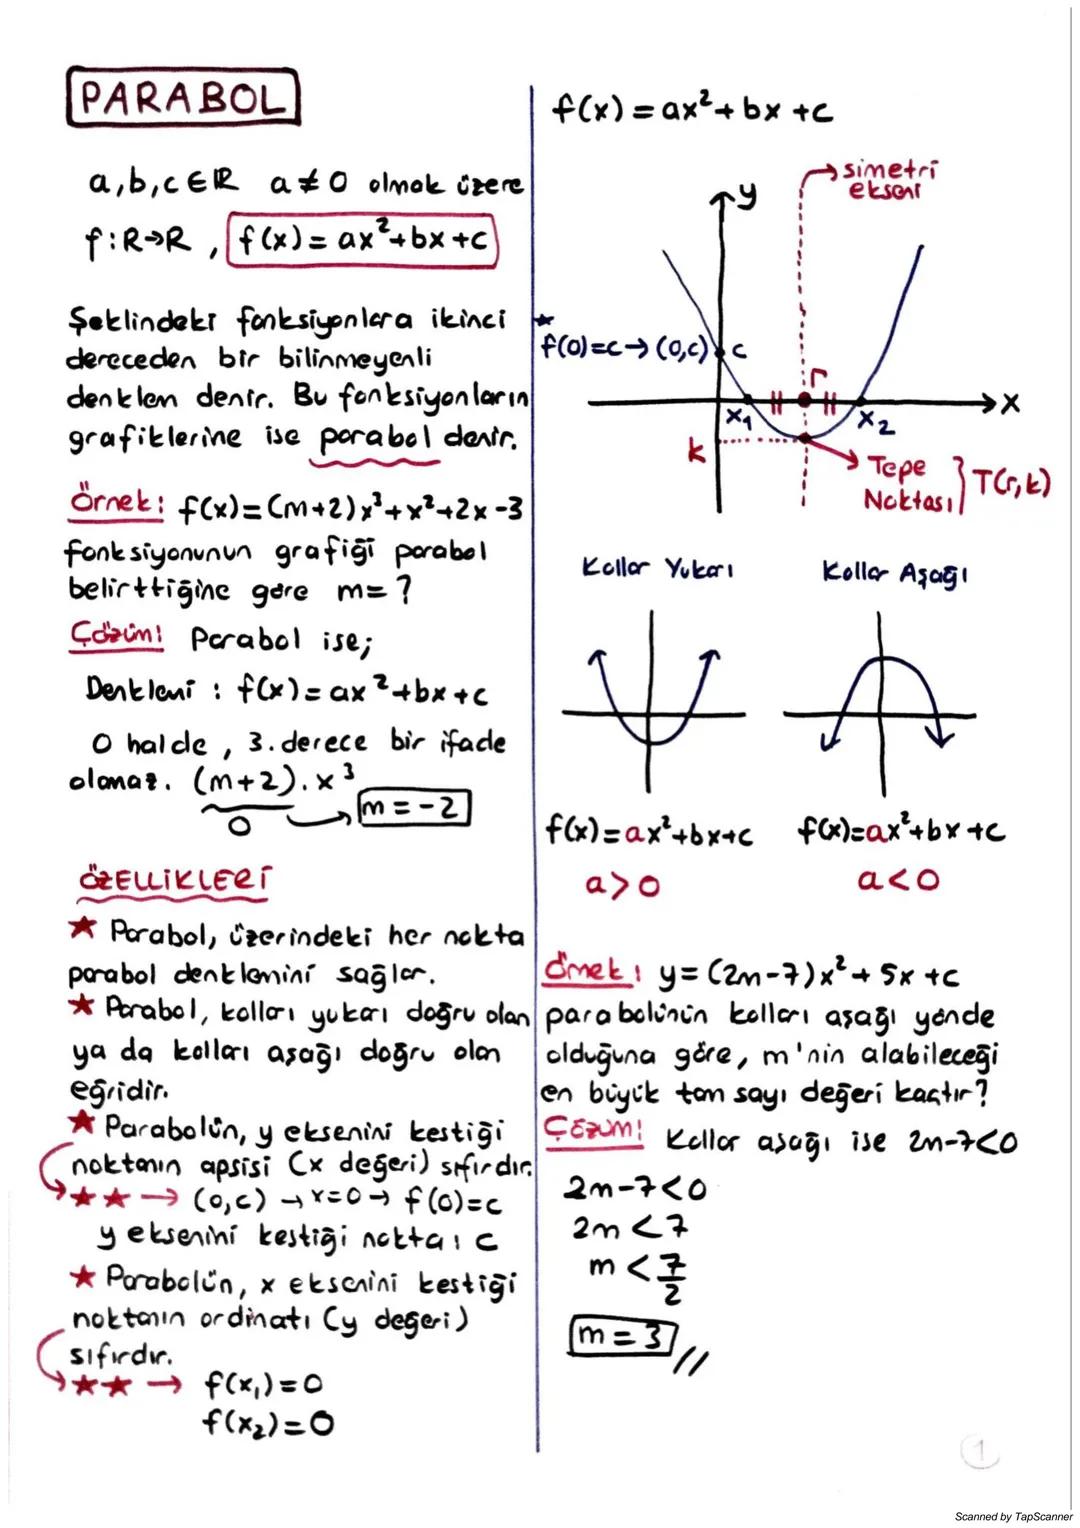 PARABOL
a,b,c∈ℝ a≠0 olmak üzere
f:R→R , f(x)=ax²+bx+c
Şeklindeki fonksiyonlara ikinci
dereceden bir bilinmeyenli
denklem denir. Bu fonksiyonların
grafiklerine ise parabol denir.
Örnek: f(x)=(m+2)x³+x²+2x-3
fonksiyonunun grafiği parabol
belirttiğine göre m=?
Çözüm: Parabol ise;
Denklemi : f(x)=ax²+bx+c
O halde, 3.derece bir ifade
olamaz. (m+2).x³
0 m=-2
ÖZELLİKLERİ
★ Parabol, üzerindeki her nokta
parabol denklemini sağlar.
★ Parabol, kolları yukarı doğru olan
ya da kolları aşağı doğru olan
eğridir.
★ Parabolün, y eksenini kestiği
noktanın apsisi (x değeri) sıfırdır.
★★→ (0,c) → x=0 → f(0)=c
y eksenini kestiği nokta: c
★ Parabolün, x eksenini kestiği
noktanın ordinatı (y değeri)
sıfırdır.
★★ → f(x₁)=0
f(x₂)=0
f(x)=ax²+bx+c
simetri
ekseni
y
★
f(0)=c→(0,c) c
r
x
x₁ x₂
k
Tepe
Noktası } T(r,k)
Kollar Yukarı Kollar Aşağı
f(x)=ax²+bx+c f(x)=ax²+bx+c
a>0 a<0
Örnek: y=(2m-7)x²+5x+c
parabolünün kolları aşağı yönde
olduğuna göre, m'nin alabileceği
en büyük tam sayı değeri kaçtır?
Çözüm: Kollar aşağı ise 2m-7<0
2m-7<0
2m<7
m<7/2
m=3//
1
Scanned by TapScanner